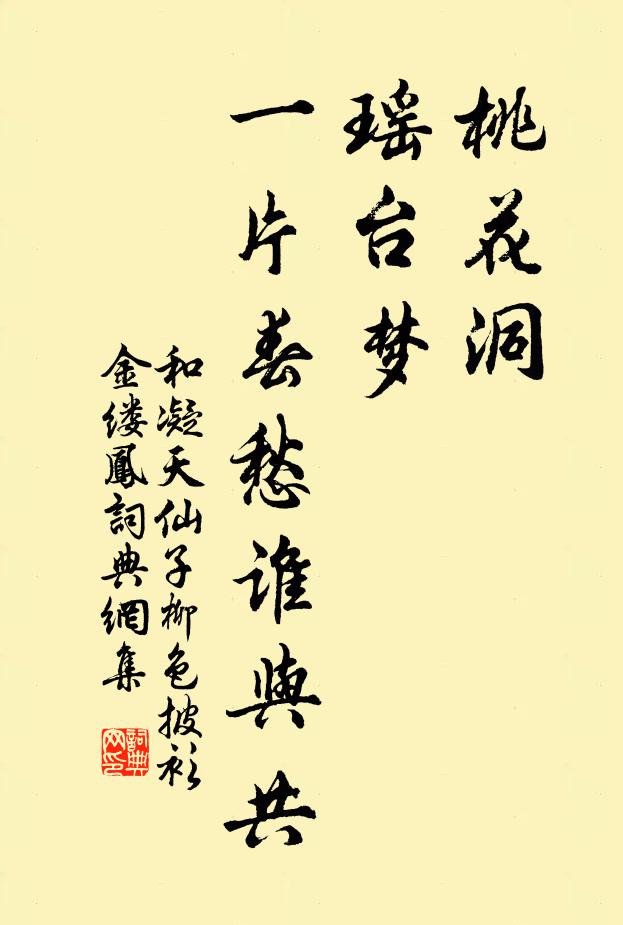 桃花洞
瑶台梦
一片春愁谁與共
和凝天仙子柳色披衫
金缕鳳詞典網集
詞典
网印